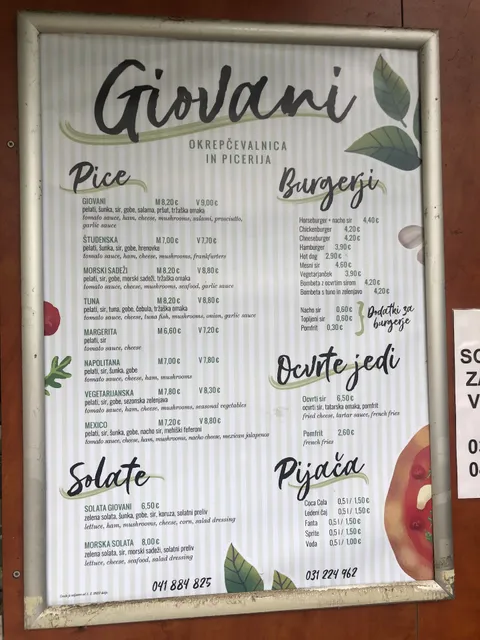 Giovani
OKREPČEVALNICA
IN PICERIJA
Pice
GIOVANI M 8,20 € V 9,00 €
pelati, šunka, sir, gobe, salama, pršut, tržaška omaka
tomato sauce, ham, cheese, mushrooms, salami, prosciutto,
garlic sauce
ŠTUDENSKA M 7,00 € V 7,70 €
pelati, šunka, sir, gobe, hrenovke
tomato sauce, ham, cheese, mushrooms, frankfurters
MORSKI SADEŽI M 8,20 € V 8,80 €
pelati, sir, gobe, morski sadeži, tržaška omaka
tomato sauce, cheese, mushrooms, seafood, garlic sauce
TUNA M 8,20 € V 8,80 €
pelati, sir, tuna, gobe, čebula, tržaška omaka
tomato sauce, cheese, tuna fish, mushrooms, onion, garlic sauce
MARGERITA M 6,60 € V 7,20 €
pelati, sir
tomato sauce, cheese
NAPOLITANA M 7,00 € V 7,80 €
pelati, sir, šunka, gobe
tomato sauce, cheese, ham, mushrooms
VEGETARIJANSKA M 7,80 € V 8,30 €
pelati, sir, gobe, sezonska zelenjava
tomato sauce, ham, cheese, mushrooms, seasonal vegetables
MEXICO M 7,20 € V 8,80 €
pelati, sir, šunka, gobe, nacho sir, mehiški feferoni
tomato sauce, cheese, ham, mushrooms, nacho cheese, mexican jalapenos
Solate
SOLATA GIOVANI 6,50 €
zelena solata, šunka, gobe, sir, koruza, solatni preliv
lettuce, ham, mushrooms, cheese, corn, salad dressing
MORSKA SOLATA 8,00 €
zelena solata, sir, morski sadeži, solatni preliv
lettuce, cheese, seafood, salad dressing
041 884 825
Burgerji
Horseburger + nacho sir 4,40 €
Chickenburger 4,20 €
Cheeseburger 4,20 €
Hamburger 3,90 €
Hot dog 2,90 €
Mesni sir 4,60 €
Vegetarjanček 3,90 €
Bombeta z ocvrtim sirom 4,20 €
Bombeta s tuno in zelenjavo 4,20 €
Nacho sir 0,60 €
Topljeni sir 0,60 €
Pomfrit 0,30 €
Dodatki za
burgerje
Ocvrte jedi
Ocvrti sir 6,50 €
ocvrti sir, tatarska omaka, pomfrit
fried cheese, tartar sauce, french fries
Pomfrit 2,60 €
french fries
Pijača
Coca Cola 0,5 l / 1,50 €
Ledeni čaj 0,5 l / 1,50 €
Fanta 0,5 l / 1,50 €
Sprite 0,5 l / 1,50 €
Voda 0,5 l / 1,00 €
031 224 462
SO
ZA
V